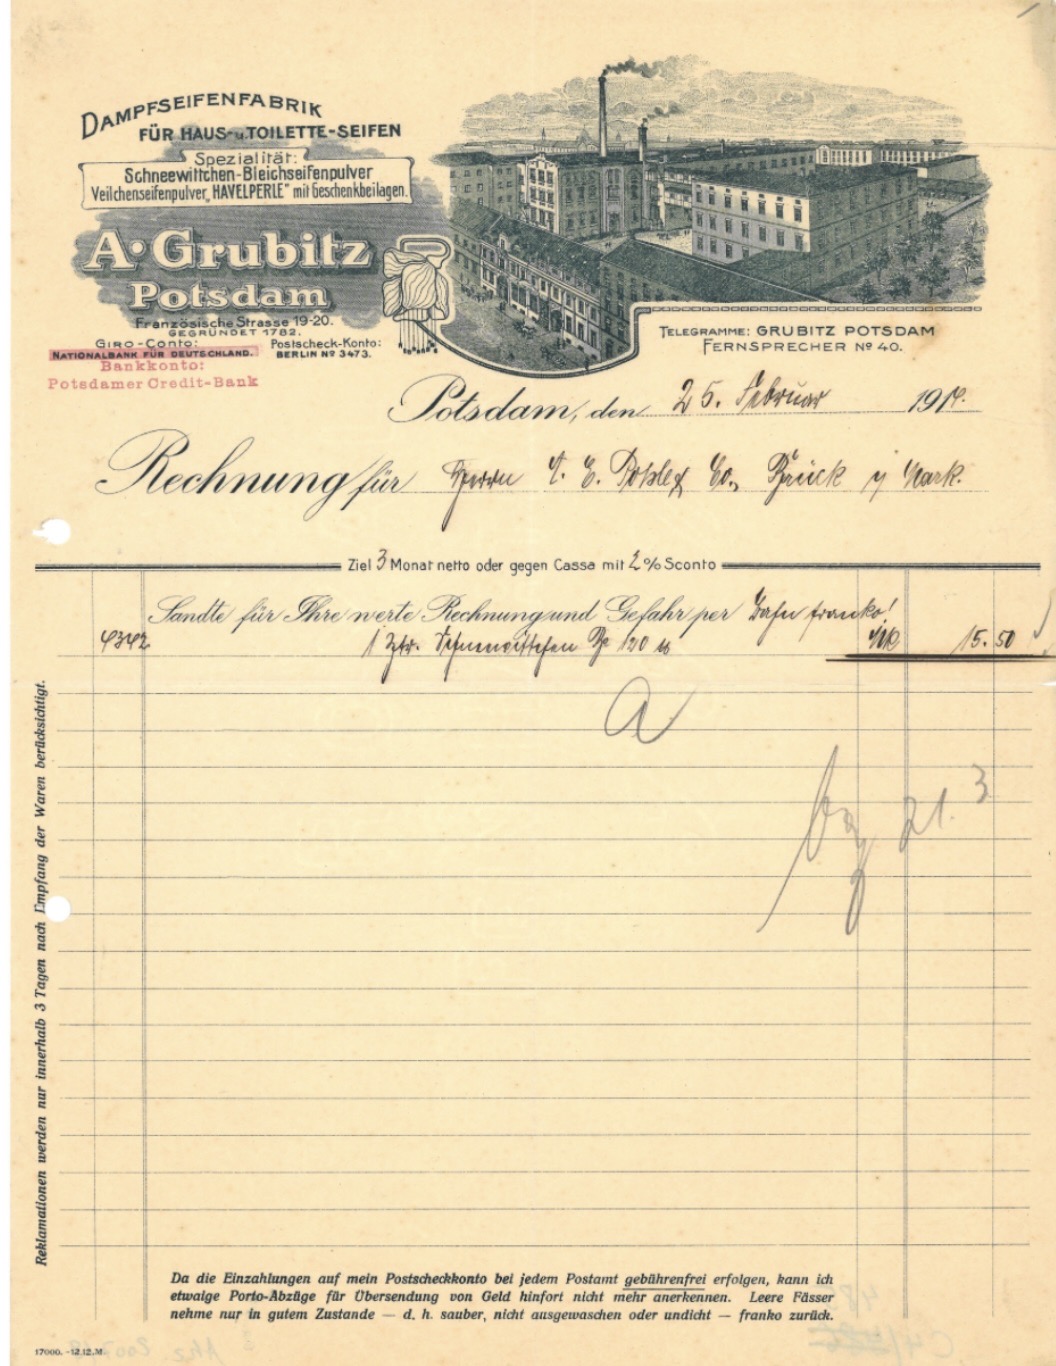 DAMPFSEIFENFABRIK
FÜR HAUS- u. TOILETTE-SEIFEN
Spezialität:
Schneewittchen-Bleichseifenpulver
Veilchenseifenpulver „HAVELPERLE" mit Geschenkbeilagen.
A. Grubitz
Potsdam
Französische Strasse 19-20.
GEGRÜNDET 1782.
GIRO-CONTO:
NATIONALBANK FÜR DEUTSCHLAND.
Postscheck-Konto:
BERLIN Nº 3473.
Bankkonto:
Potsdamer Credit-Bank
TELEGRAMME: GRUBITZ POTSDAM
FERNSPRECHER Nº 40.
Potsdam, den 25. Februar 1914.
Rechnung für Herrn E. Co., Brück Mark.
Ziel 3 Monat netto oder gegen Cassa mit 2 % Sconto
Sandte für Ihre werte Rechnung und Gefahr per Bahn franko!
4342 1 Ztr. Schneewittchen 120 Mk 15.50
a
bz 21.3
Reklamationen werden nur innerhalb 3 Tagen nach Empfang der Waren berücksichtigt.
Da die Einzahlungen auf mein Postscheckkonto bei jedem Postamt gebührenfrei erfolgen, kann ich
etwaige Porto-Abzüge für Übersendung von Geld hinfort nicht mehr anerkennen. Leere Fässer
nehme nur in gutem Zustande — d. h. sauber, nicht ausgewaschen oder undicht — franko zurück.
17000. -12.12.M.